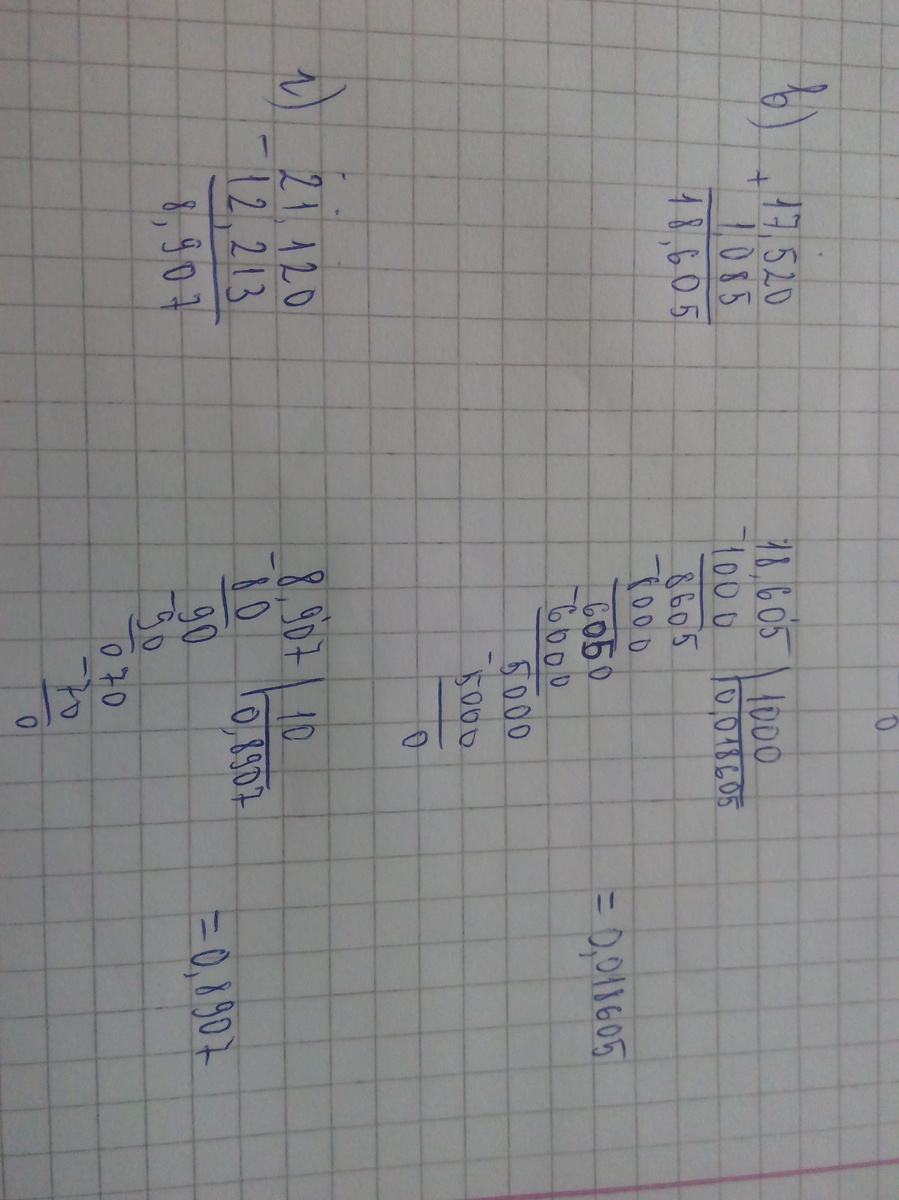 0
в) + 17,520
1,085
18,605
18,605 | 1000
- 1000 | 0,018605
8605
- 8000
6050
- 6000
5000
- 5000
0
= 0,018605
г) 21,120
- 12,213
8,907
8,907 | 10
- 80 | 0,8907
90
- 90
070
- 70
0
= 0,8907